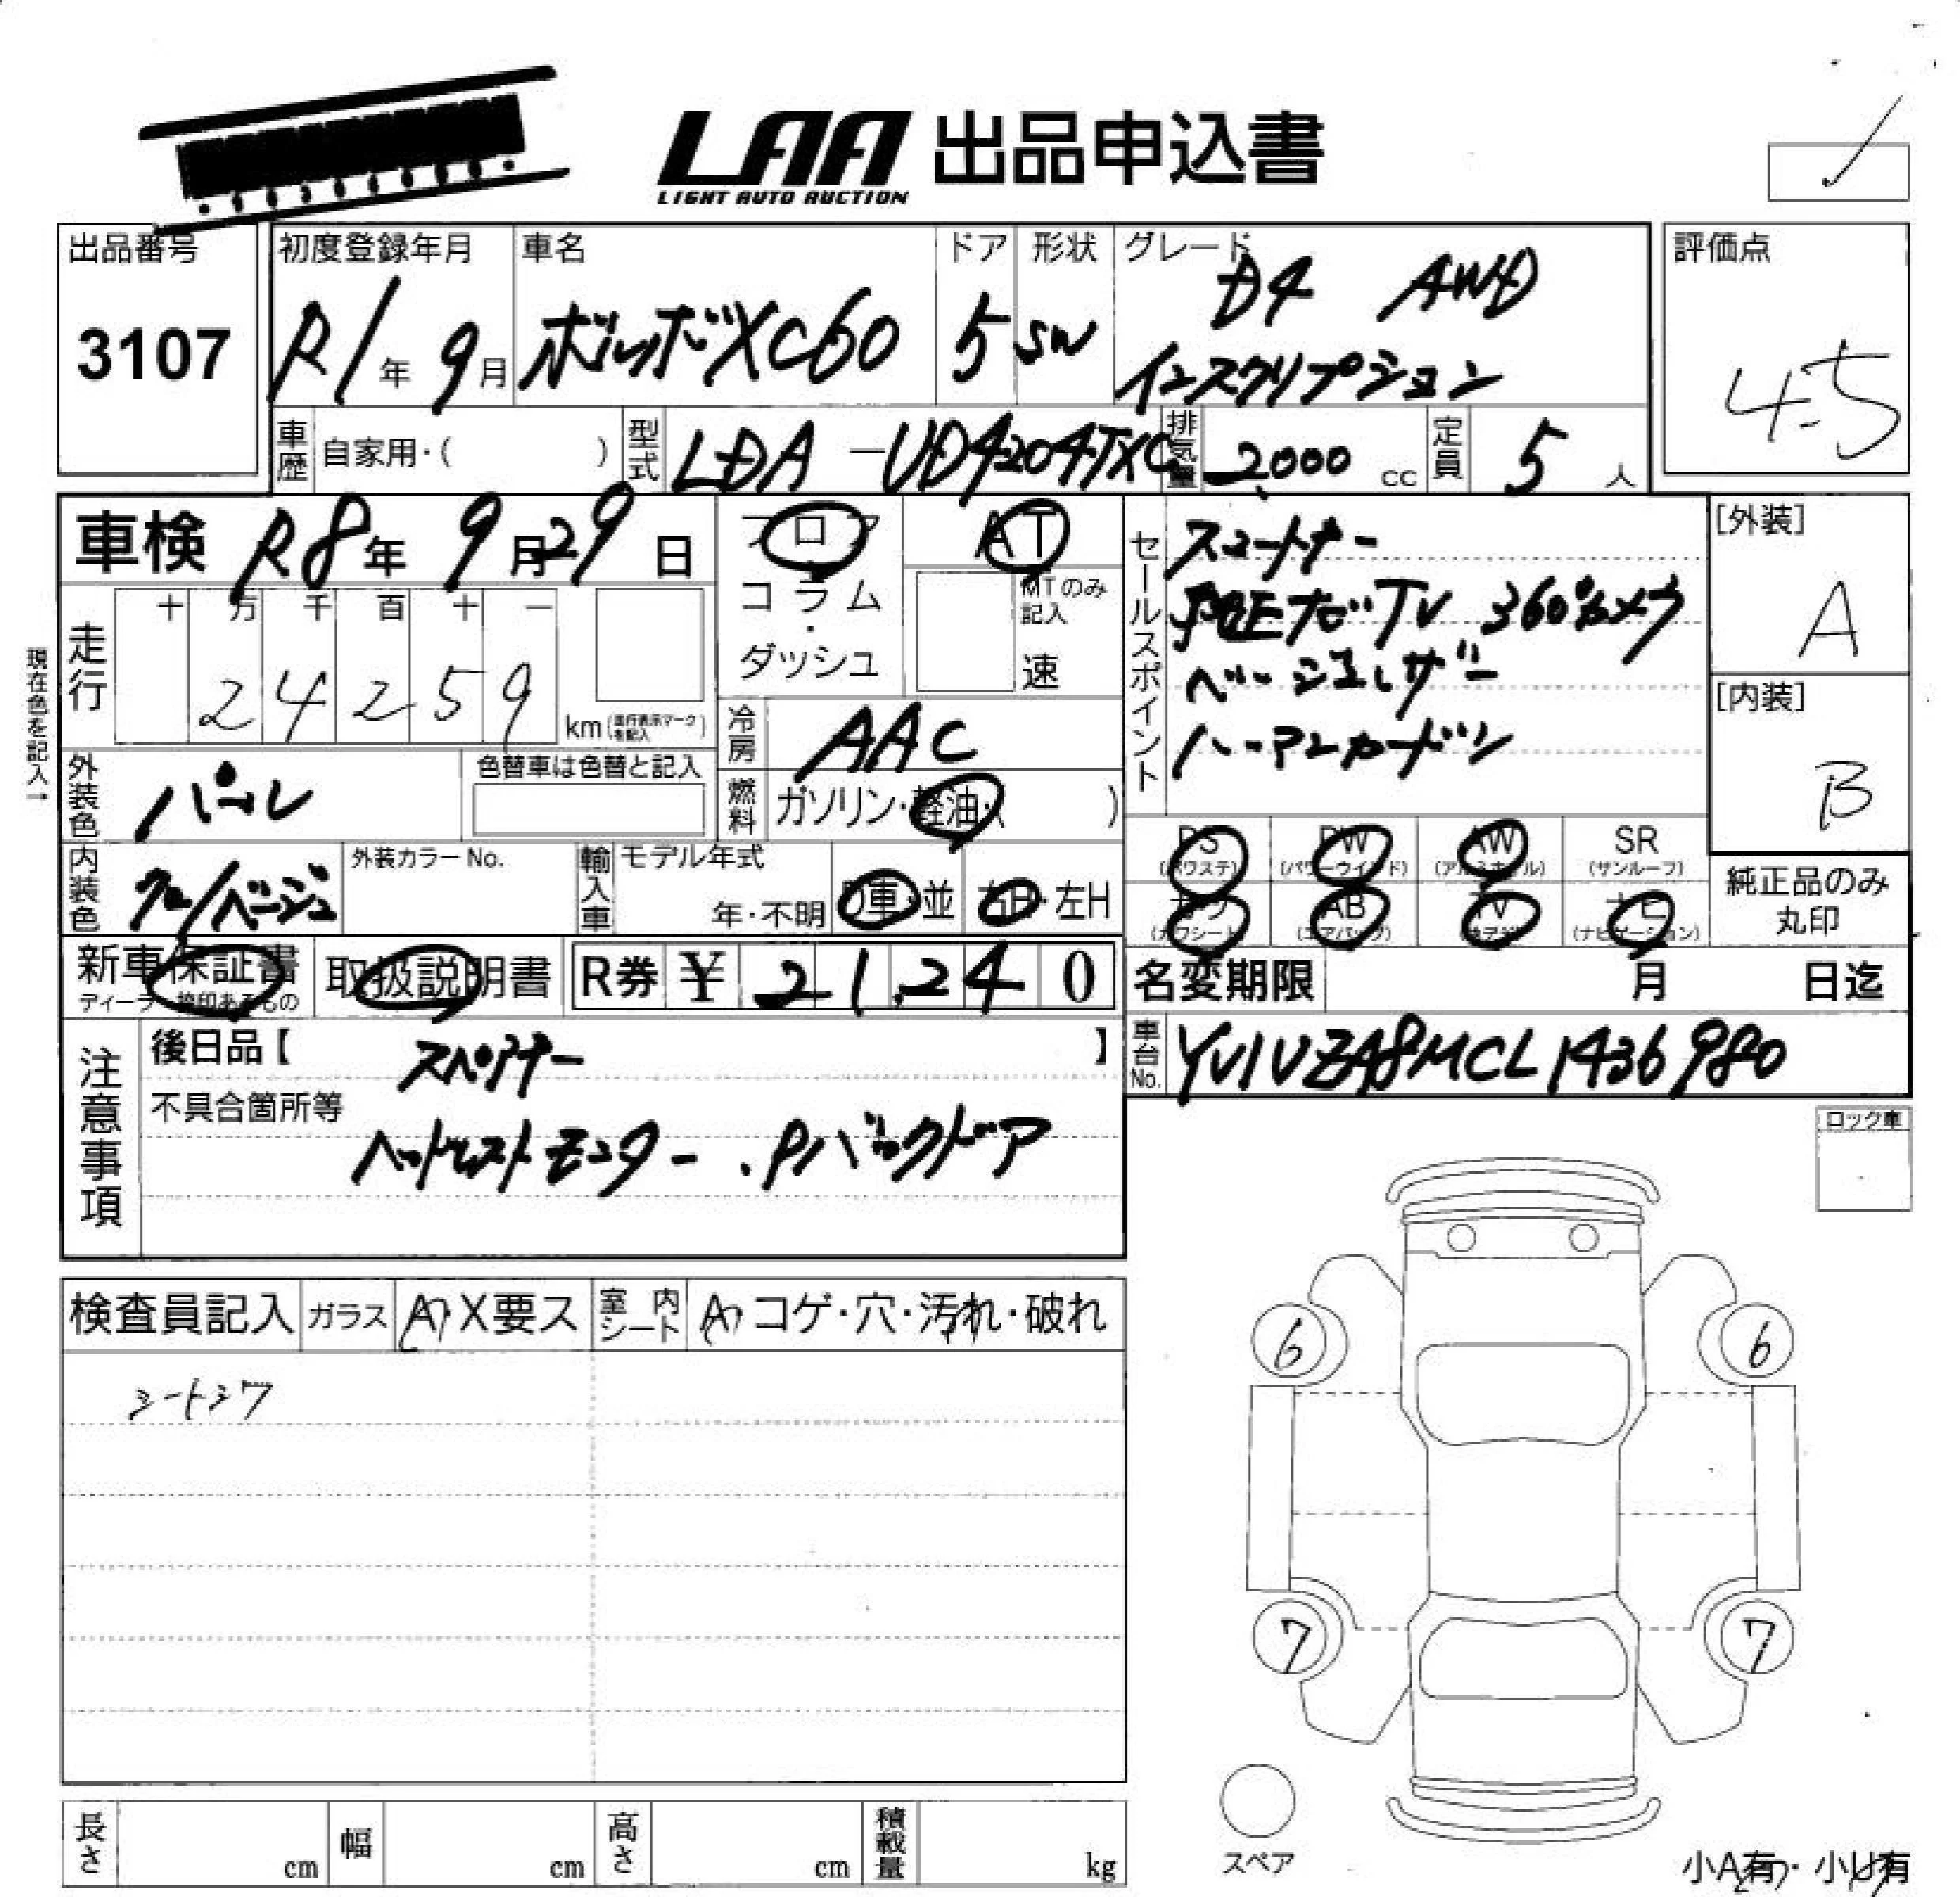 LAA 出品申込書
LIGHT AUTO AUCTION
出品番号
3107
初度登録年月
R1年 9月
車名
ボルボXC60
ドア
5
形状
SW
グレード
D4 AWD
インスクリプション
評価点
4.5
車歴
自家用・( )
型式
LDA-UD4204TXC
排気量
2,000 cc
定員
5人
車検 R8年 9月29日
フロア
コラム
・
ダッシュ
AT
MTのみ
記入
速
セールスポイント
スマートキー
純正ナビTV 360°カメラ
ベージュレザー
ハーマンカードン
[外装]
A
[内装]
B
現在色を記入→
走行
十 万 千 百 十 一
2 4 2 5 9
km (走行表示マークを記入)
冷房
AAC
燃料
ガソリン・軽油・( )
外装色
パール
色替車は色替と記入
内装色
クロ/ベージュ
外装カラーNo.
輸入車
モデル年式
年・不明
D車・並
右H・左H
PS
(パワステ)
PW
(パワーウインド)
AW
(アルミホイール)
SR
(サンルーフ)
カワ
(カワシート)
AB
(エアバッグ)
TV
ナビ
(ナビゲーション)
純正品のみ
丸印
新車保証書
取扱説明書
R券 ¥ 21,240
名変期限 月 日迄
注意事項
後日品【 スペアキー 】
不具合箇所等
ヘッドレストモニター、Pバックドア
車台No.
YV1UZA8MCL1436980
ロック車
検査員記入
ガラス
A ・X要ス
室内シート
A ・コゲ・穴・汚れ・破れ
シートシワ
6
6
7
7
スペア
長さ cm
幅 cm
高さ cm
積載量 kg
小A有・小U有